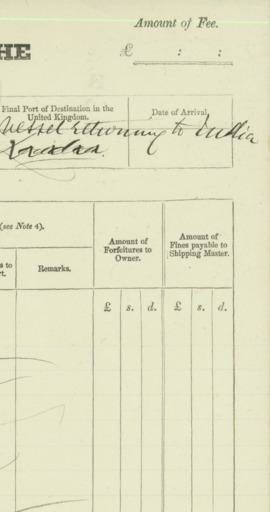 Amount of Fee.
HE
£ : :
Final Port of Destination in the
United Kingdom.
Date of Arrival.
Vessel returning to India
London.
(see Note 4).
s to
rt.
Remarks.
Amount of
Forfeitures to
Owner.
Amount of
Fines payable to
Shipping Master.
£ s. d. £ s. d.